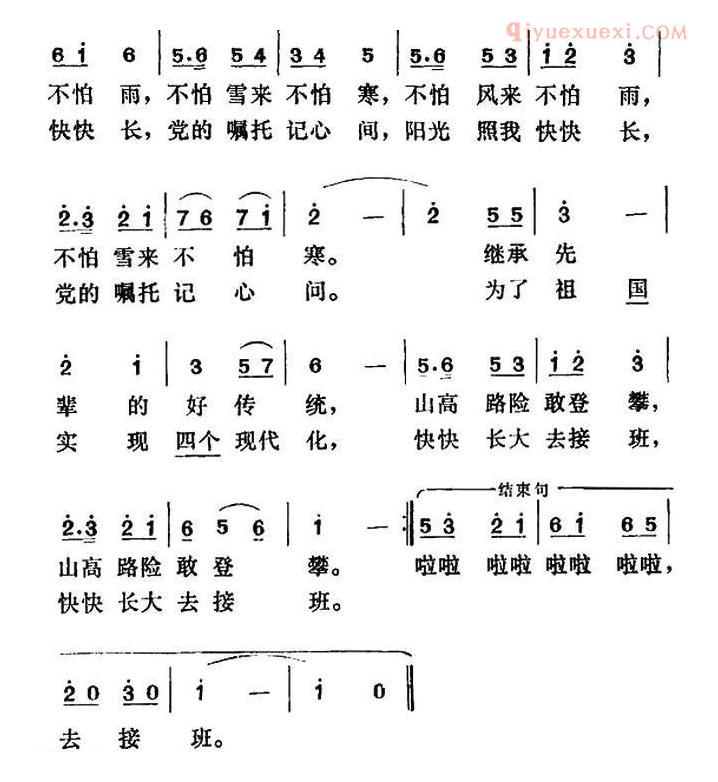 qiyuexuexi.com
6 i 6 | 5.6 5 4 | 3 4 5 | 5.6 5 3 | i 2 3 |
不怕雨，不怕雪来不怕寒，不怕风来不怕雨，
快快长，党的嘱托记心间，阳光照我快快长，
2.3 2 i | 7 6 7 i | 2 — | 2 5 5 | 3 — |
不怕雪来不怕寒。继承先
党的嘱托记心间。为了祖国
2 i | 3 5 7 | 6 — | 5.6 5 3 | i 2 3 |
辈的好传统，山高路险敢登攀，
实现四个现代化，快快长大去接班，
结束句
2.3 2 i | 6 5 6 | i — :‖ 5 3 2 i | 6 i 6 5 |
山高路险敢登攀。啦啦啦啦啦啦啦啦，
快快长大去接班。
2 0 3 0 | i — | i 0 ‖
去接班。